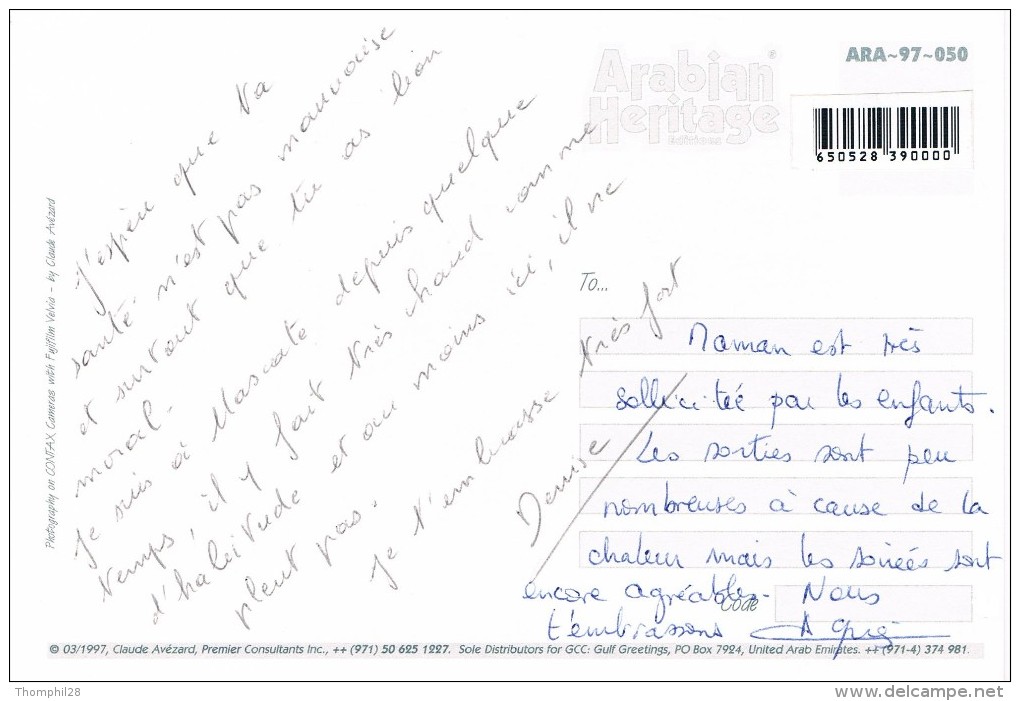 J'espère que ta
santé n'est pas mauvaise
et surtout que tu as bon
moral -
Je suis à Mascate depuis quelque
temps, il y fait très chaud comme
d'habitude et au moins ici, il ne
pleut pas.
Je t'embrasse très fort
Denise
Arabian
Heritage
editions
ARA~97~050
650528 390000
To...
Maman est très
sollicitée par les enfants.
Les sorties sont peu
nombreuses à cause de la
chaleur mais les soirées sont
encore agréables. Nous
t'embrassons
Code
Photography on CONTAX Cameras with Fujifilm Velvia - by Claude Avézard
© 03/1997, Claude Avézard, Premier Consultants Inc., ++ (971) 50 625 1227. Sole Distributors for GCC: Gulf Greetings, PO Box 7924, United Arab Emirates. ++ (971-4) 374 981.
Thomphil28
www.delcampe.net